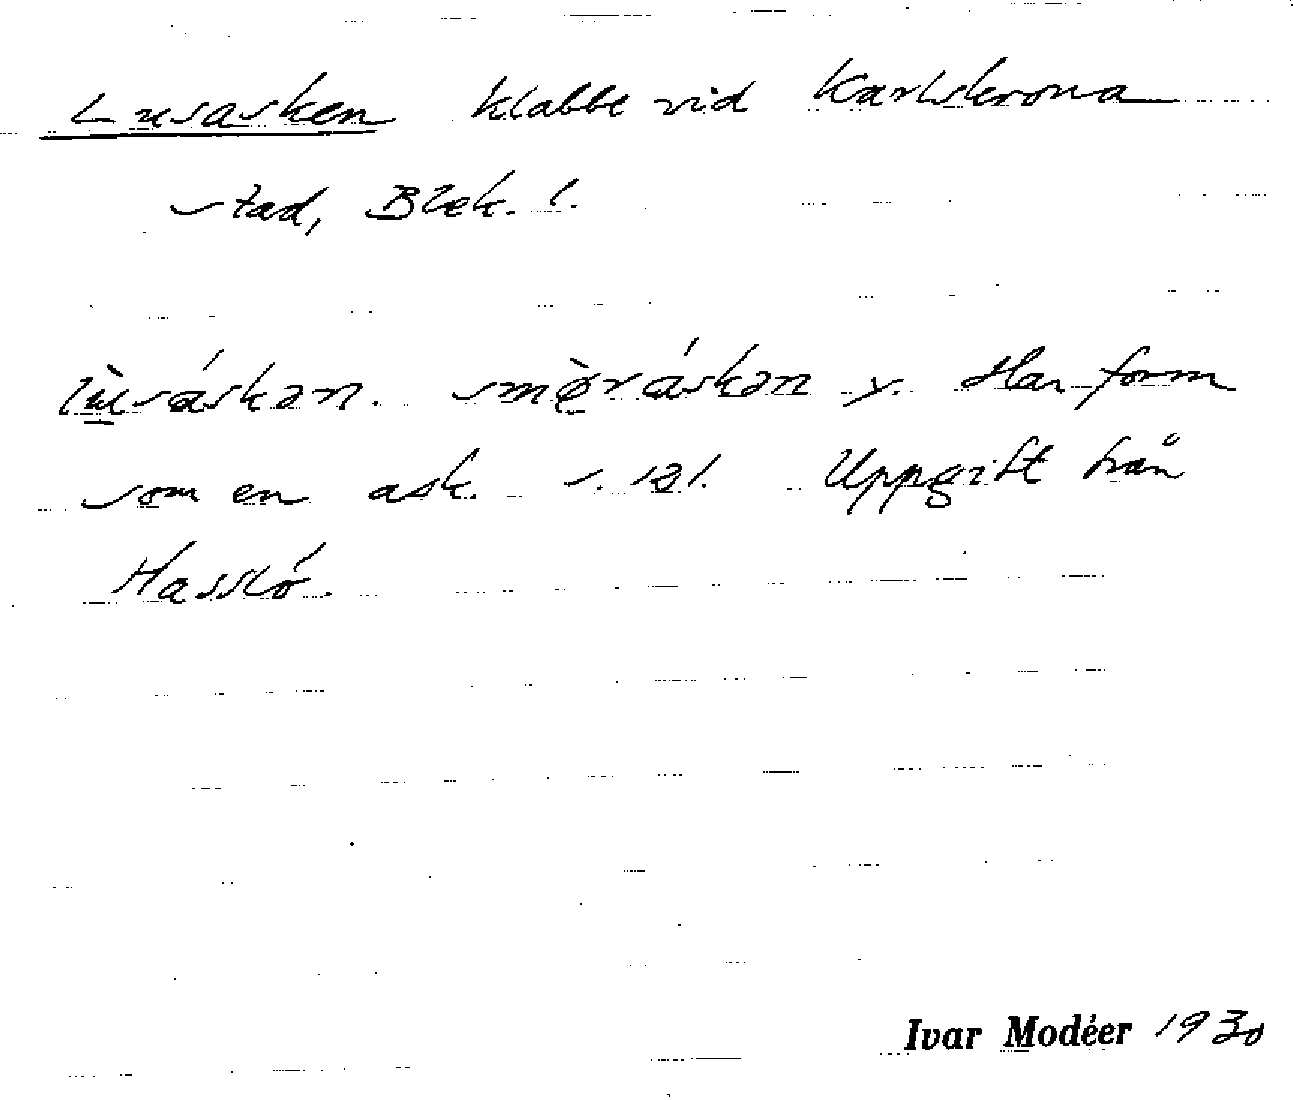 Lusasken klabbe vid Karlskrona
stad, Blek. l.
lùsáskən. smø̀ráskən y. Har form
som en ask. s. 121. Uppgift från
Hasslö.
Ivar Modéer 1930